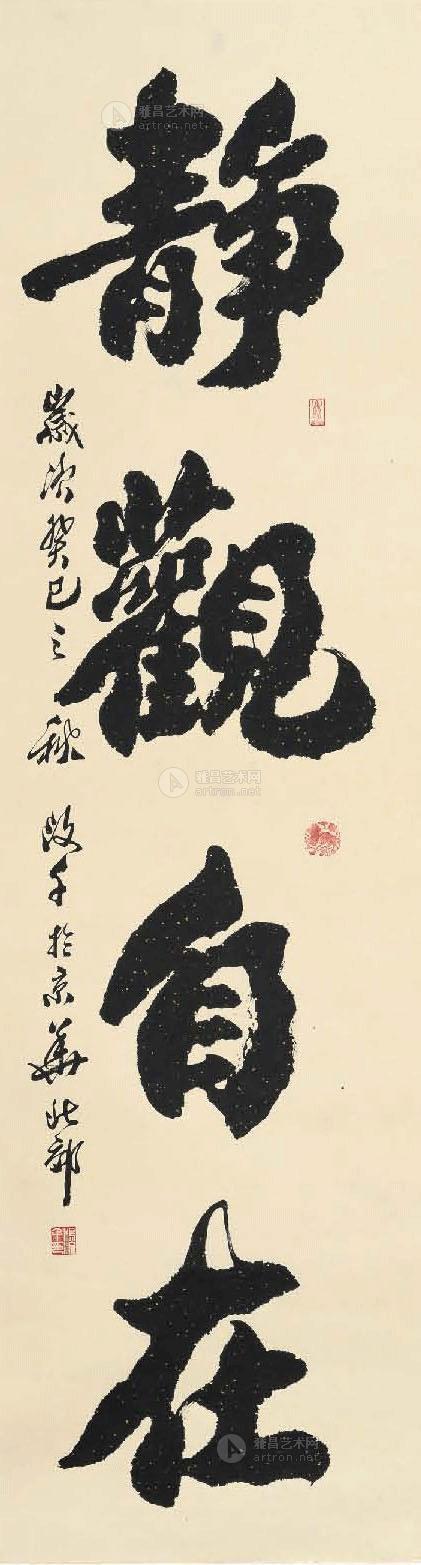 靜觀自在
歲次癸巳之秋 啟千於京華北部
雅昌艺术网
artron.net
雅昌艺术网
artron.net
雅昌艺术网
artron.net